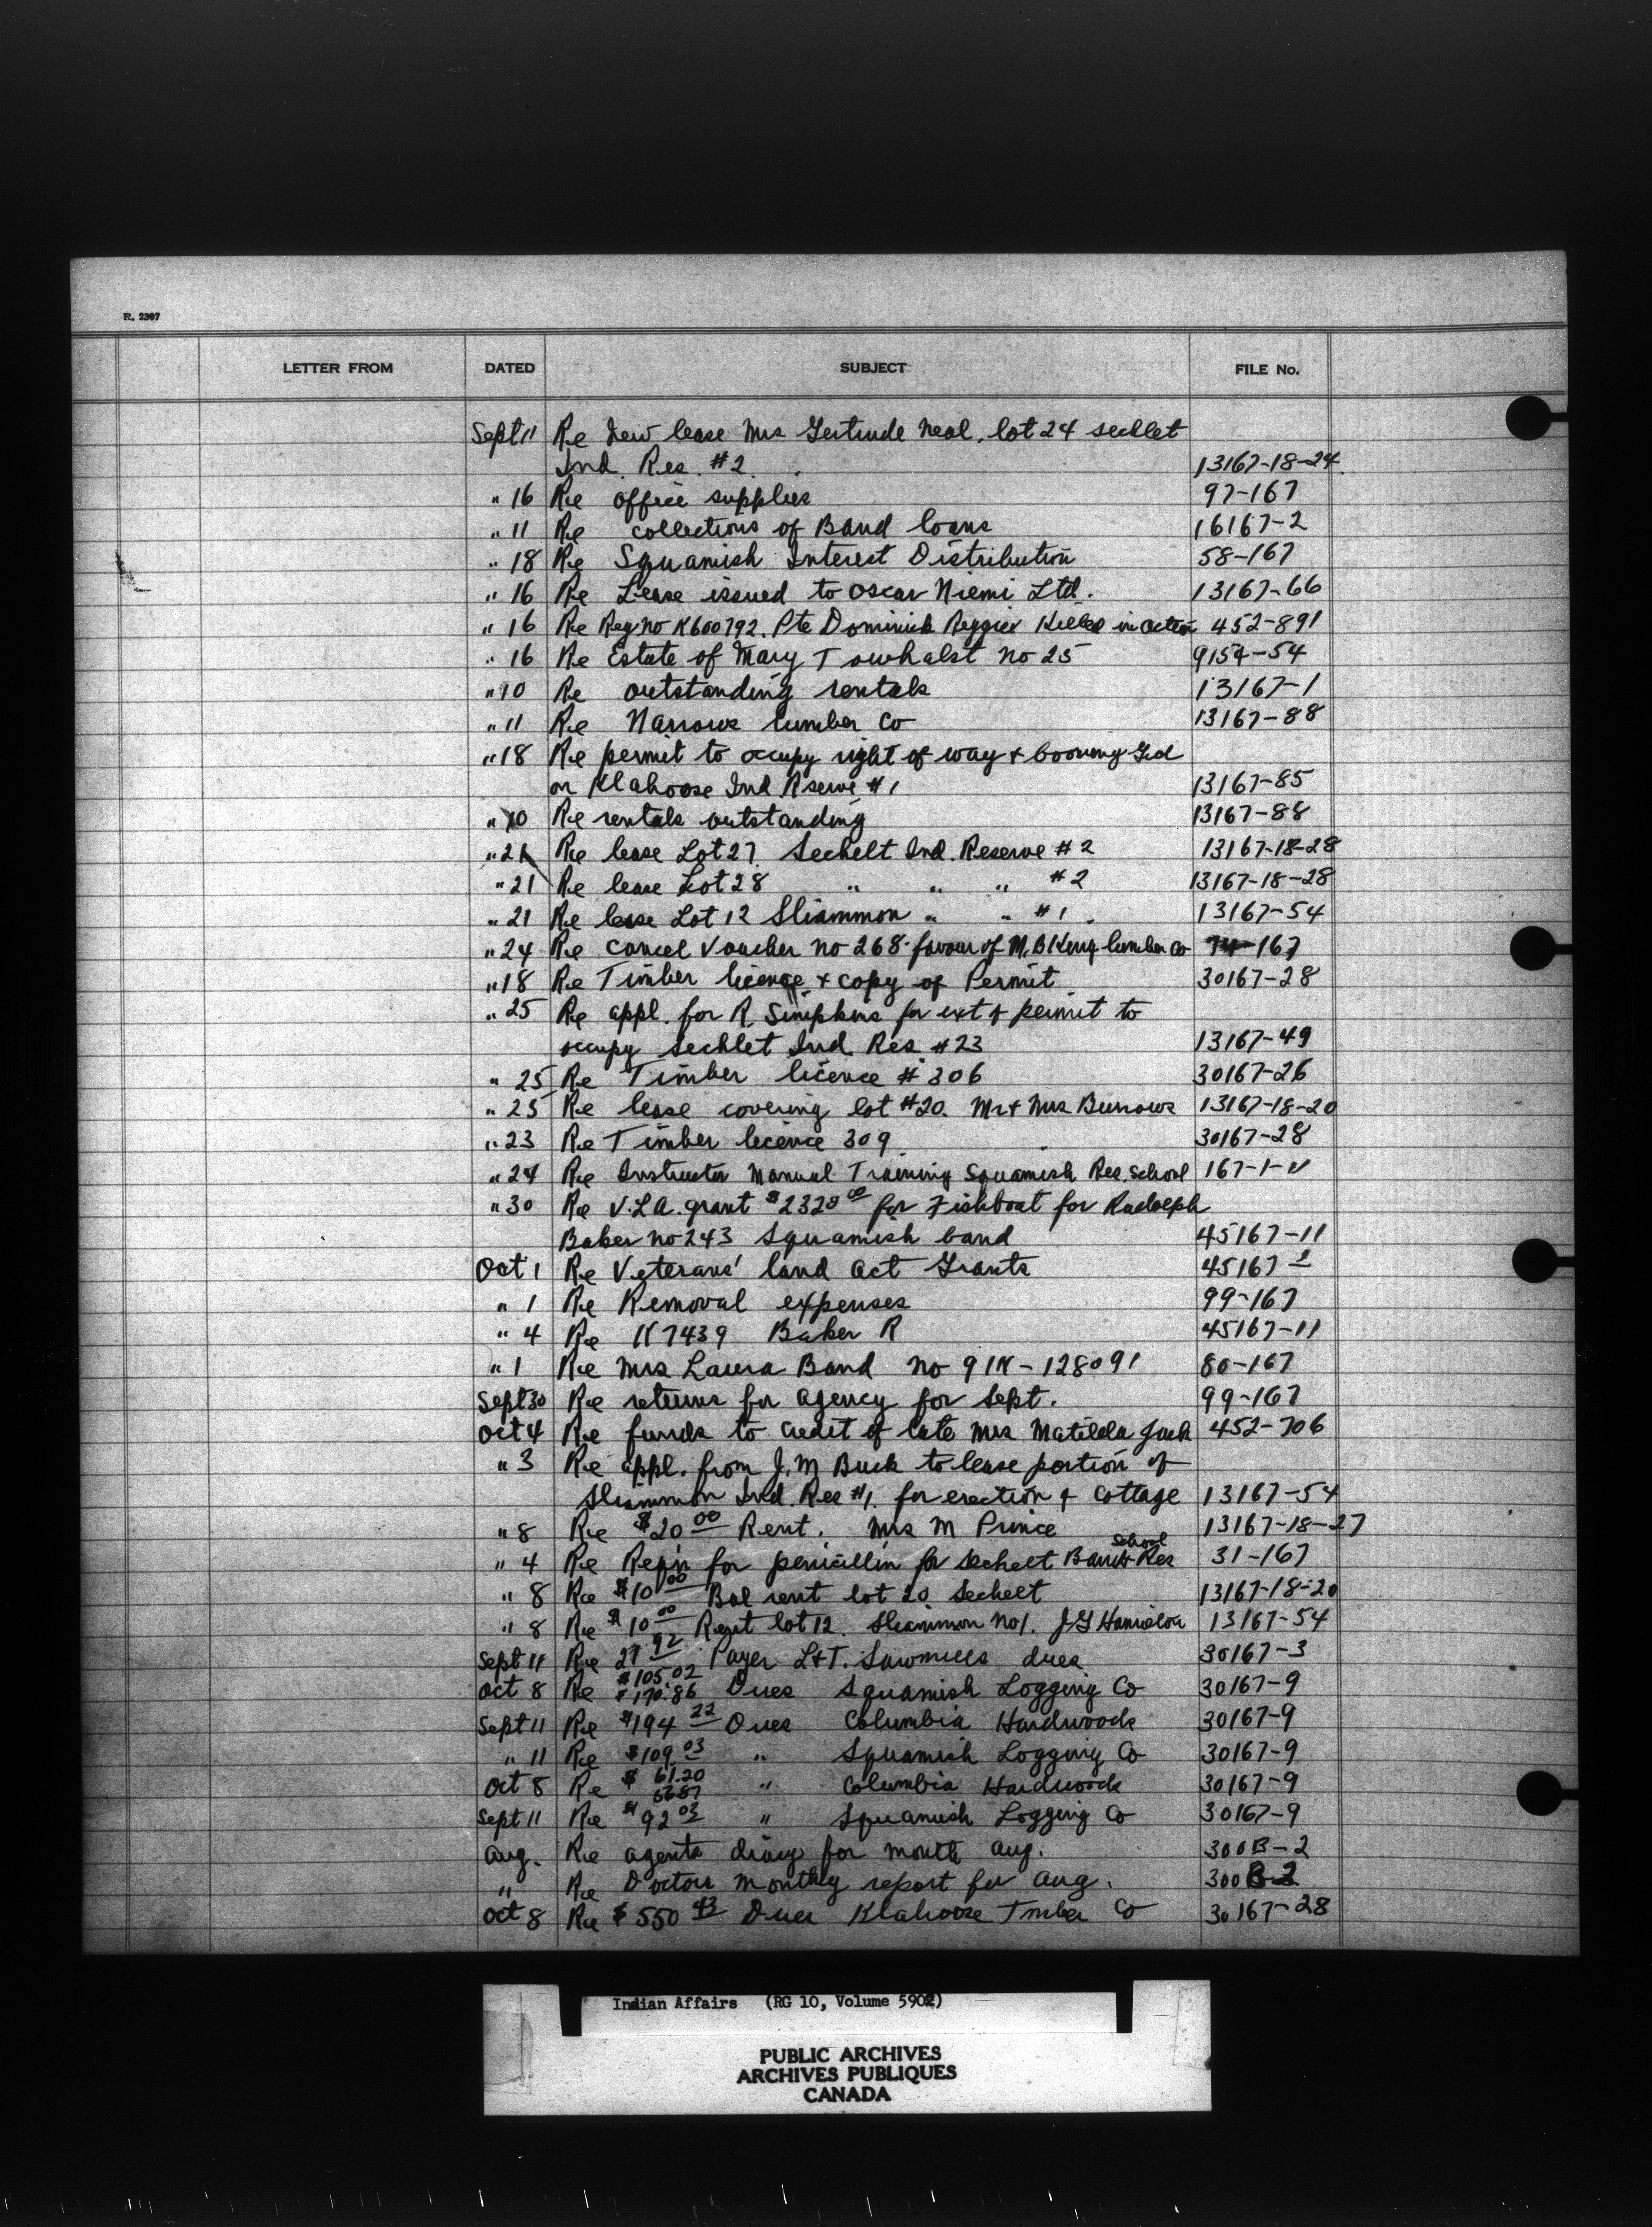 R. 2307
LETTER FROM DATED SUBJECT FILE No.
Sept 11 Re New lease Mrs Gertrude Neal. lot 24 sechlet
Ind. Res. #2. 13167-18-24
" 16 Re office supplies 97-167
" 11 Re collections of Band loans 16167-2
" 18 Re Squamish Interest Distribution 58-167
" 16 Re Lease issued to Oscar Niemi Ltd. 13167-66
" 16 Re Reg no K600792. Pte Dominick Killed in action 452-891
" 16 Re Estate of Mary Towhalst no 25 9154-54
" 10 Re outstanding rentals 13167-1
" 11 Re Narrows lumber Co 13167-88
" 18 Re permit to occupy right of way & booming Grd
on Klahoose Ind Rserve #1 13167-85
" 10 Re rentals outstanding 13167-88
" 21 Re lease Lot 27 Sechelt Ind. Reserve #2 13167-18-28
" 21 Re lease Lot 28 " " " #2 13167-18-28
" 21 Re lease Lot 12 Sliammon " " #1. 13167-54
" 24 Re cancel Voucher no 268 favour of M. B King lumber Co 74-167
" 18 Re Timber licence & copy of Permit 30167-28
" 25 Re appl. for R. Simpkins for ext of permit to
occupy sechlet Ind. Res #23 13167-49
" 25 Re Timber licence #306 30167-26
" 25 Re lease covering lot #20. Mr & Mrs Burrows 13167-18-20
" 23 Re Timber licence 309. 30167-28
" 24 Re Instructor Manual Training Squamish Res. School 167-1-11
" 30 Re V.L.A. grant $2320 00 for Fishboat for Rudolph
Baker no 243 Squamish band 45167-11
Oct 1 Re Veterans' land Act Grants 45167-1
" 1 Re Removal expenses 99-167
" 4 Re K7439 Baker R 45167-11
" 1 Re Mrs Laura Band no 91K-128091 80-167
Sept 30 Re returns for agency for Sept. 99-167
Oct 4 Re funds to credit of late Mrs Matilda Jack 452-706
" 3 Re appl. from J. M Buck to lease portion of
Sliammon Ind. Res #1. for erection of cottage 13167-54
" 8 Re $20 00 Rent. Mrs M Prince 13167-18-27
school
" 4 Re Reqn for penicillin for Sechelt Band & Res 31-167
" 8 Re $10 00 Bal rent lot 20 Sechelt 13167-18-20
" 8 Re $10 00 Rent lot 12. Sliammon no 1. J G 13167-54
Sept 11 Re 27 92 Payer L & T. Sawmills dues 30167-3
Oct 8 Re $105.02 $170.86 Dues Squamish Logging Co 30167-9
Sept 11 Re $194 22 Dues Columbia Hardwoods 30167-9
" 11 Re $109 03 " Squamish Logging Co 30167-9
Oct 8 Re $ 61.20 56.87 " Columbia Hardwoods 30167-9
Sept 11 Re $92 03 " Squamish Logging Co 30167-9
Aug. Re agents diary for month Aug. 300B-2
" Re Doctors monthly report for Aug. 300B-2
Oct 8 Re $550 43 Dues Klahoose Tmber Co 30167-28
Indian Affairs (RG 10, Volume 5902)
PUBLIC ARCHIVES
ARCHIVES PUBLIQUES
CANADA